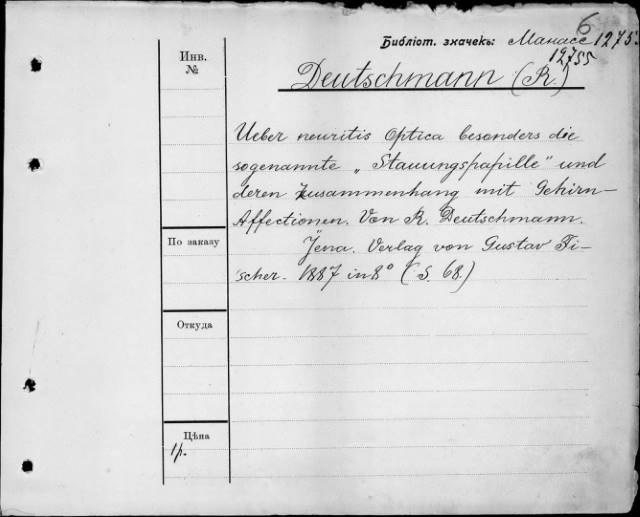 6
Библіот. значекъ: Манасе 1275
12755
Инв.
№
Deutschmann (R.)
Ueber neuritis Optica besonders die
sogenannte „Stauungspapille" und
deren Zusammenhang mit Gehirn-
Affectionen. Von R. Deutschmann.
Jena. Verlag von Gustav Fi-
scher. 1887 in 8° (S. 68.)
По заказу
Откуда
Цѣна
1р.